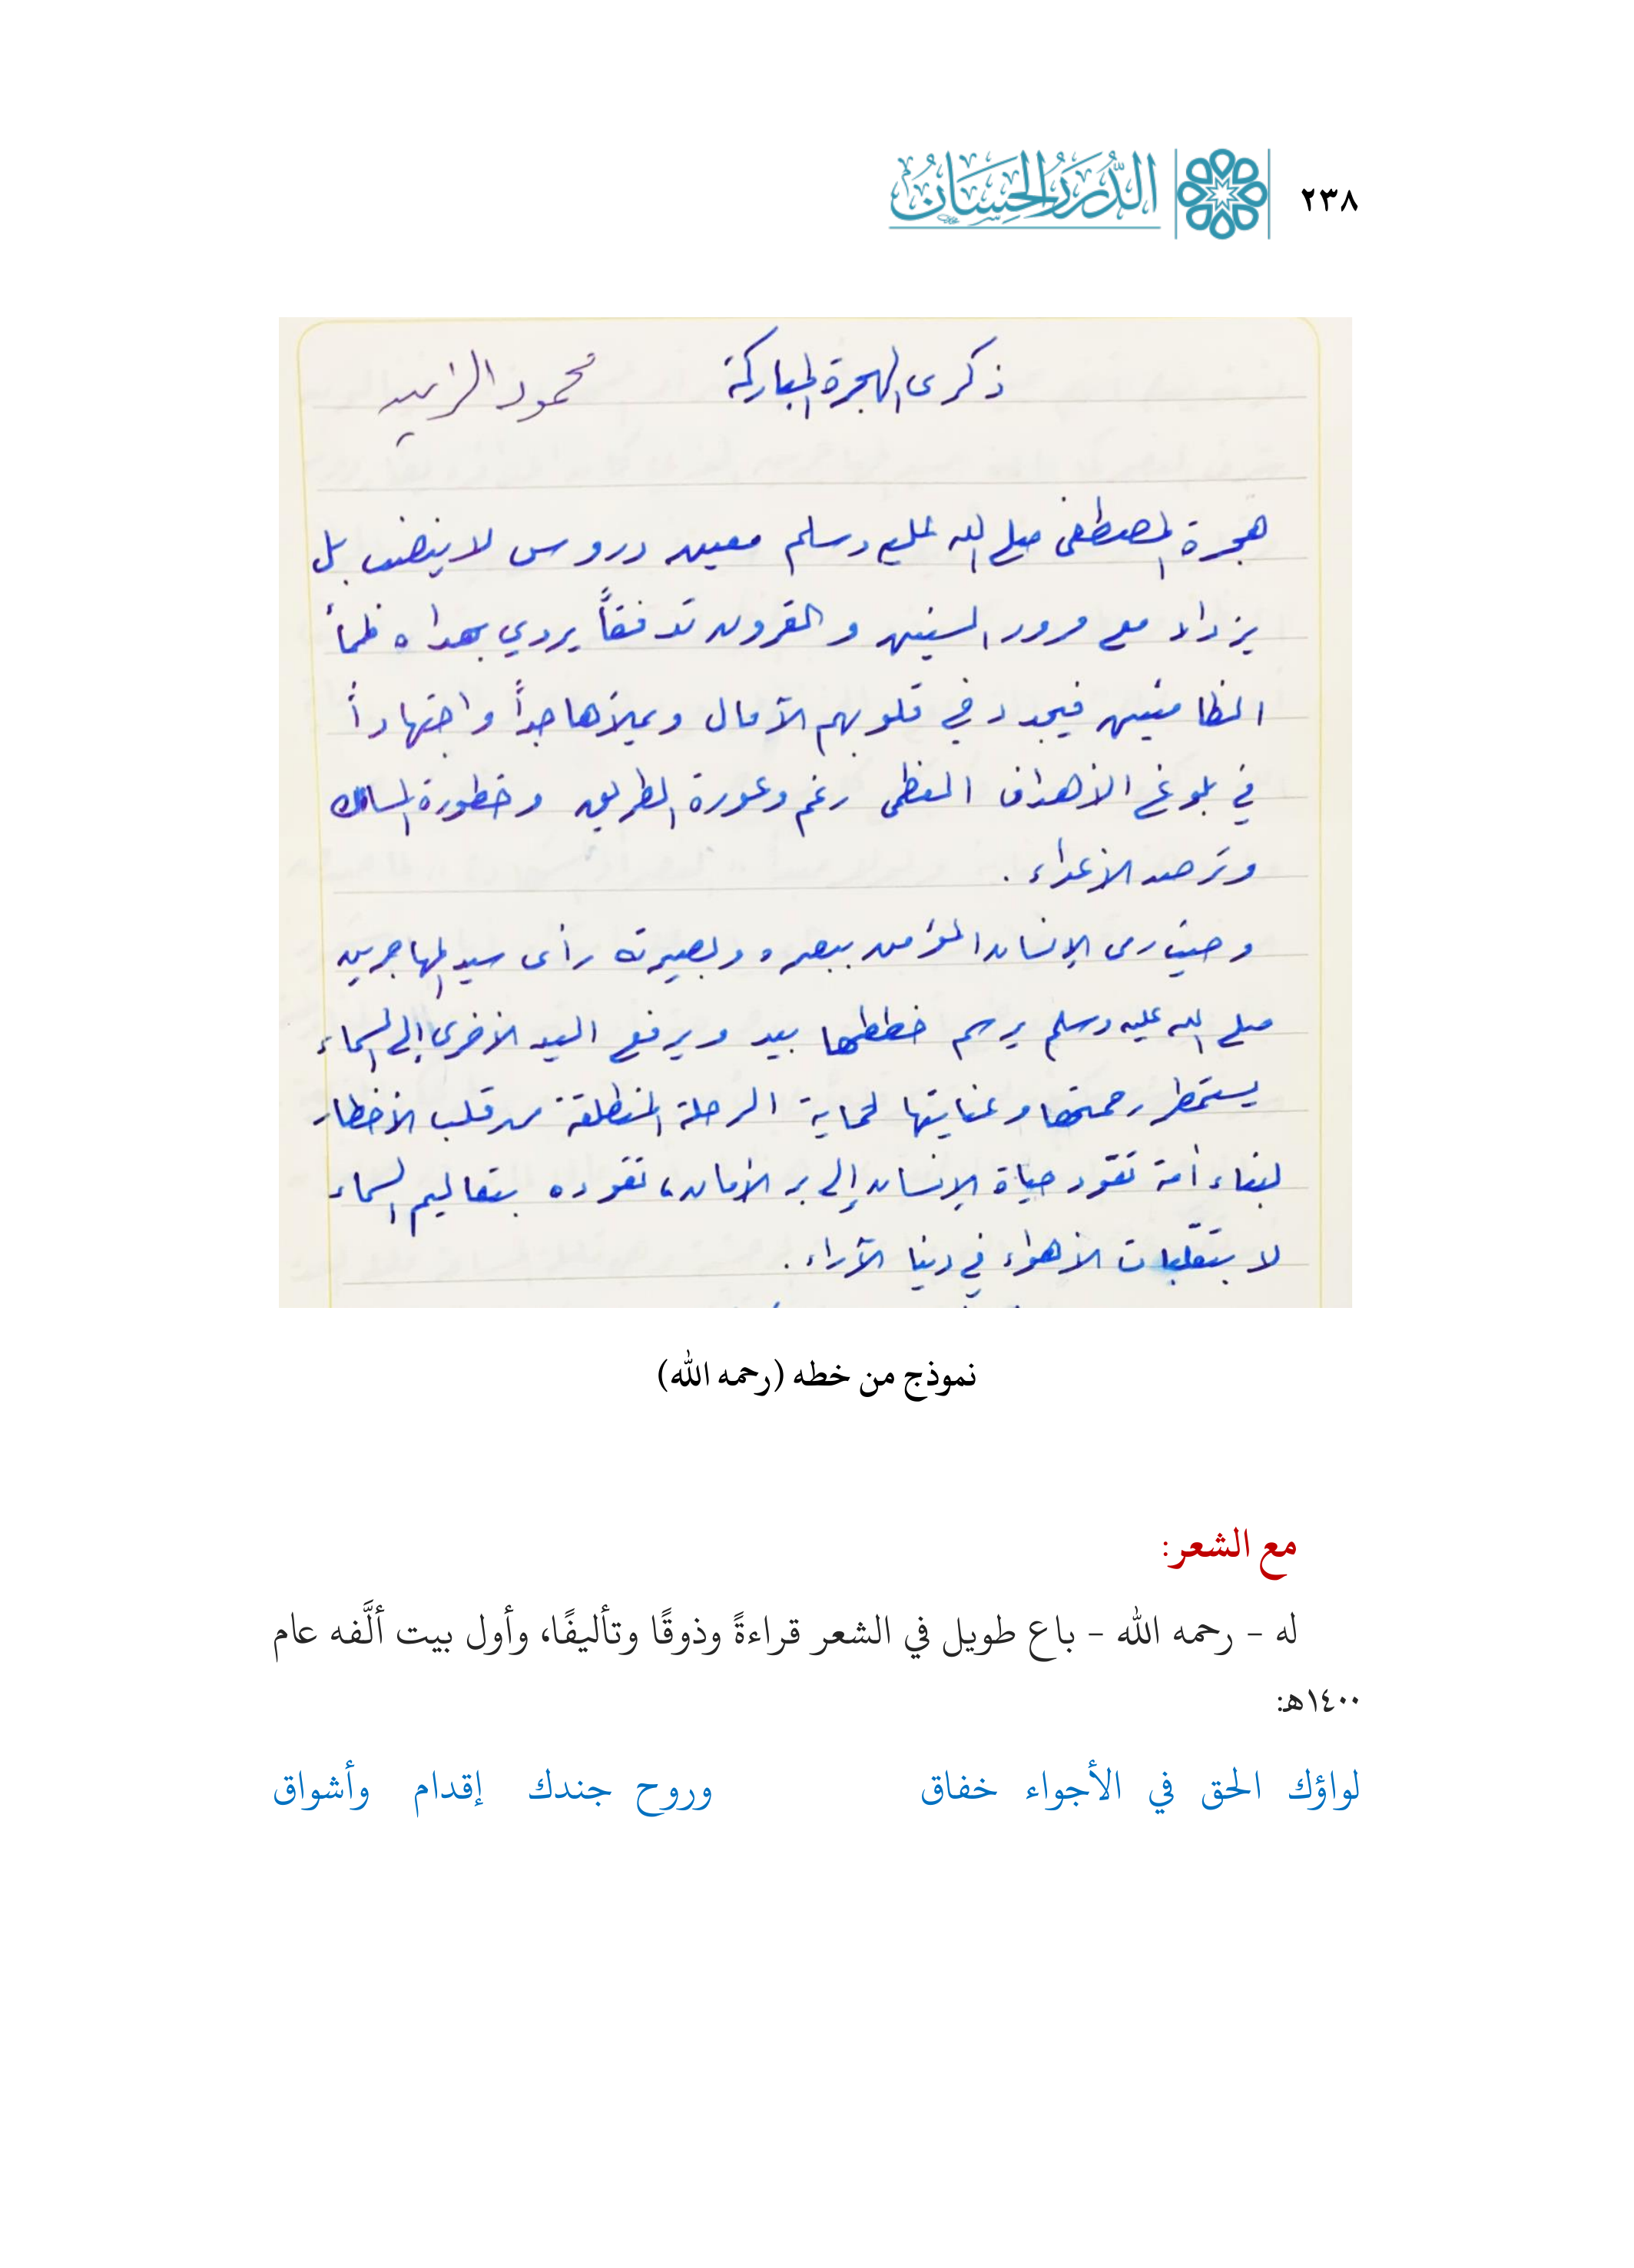 ٢٣٨
الدُّرَرُ الحِسَانُ
ذكرى الهجرة المباركة محمود الزين
هجرة المصطفى صلى الله عليه وسلم معين دروس لا ينضب بل
يزداد مع مرور السنين والقرون تدفقاً يروي بهداه ظمأ
الظامئين فيجدد في قلوبهم الآمال ويملأها جداً واجتهاداً
في بلوغ الأهداف العظمى رغم وعورة الطريق وخطورة المسالك
وترصد الأعداء .
وحيث رمى الإنسان المؤمن ببصره وبصيرته رأى سيد المهاجرين
صلى الله عليه وسلم يرسم خططها بيد ويرفع اليد الأخرى إلى السماء
يستمطر رحمتها وعنايتها لحماية الرحلة المنطلقة من قلب الأخطار
لبناء أمة تقود حياة الإنسان إلى بر الأمان، تقوده بتعاليم السماء
لا بتقلبات الأهواء في دنيا الآراء .
نموذج من خطه (رحمه الله)
مع الشعر:
له – رحمه الله – باع طويل في الشعر قراءةً وذوقًا وتأليفًا، وأول بيت ألَّفه عام
١٤٠٠هـ:
لواؤك الحق في الأجواء خفاق وروح جندك إقدام وأشواق